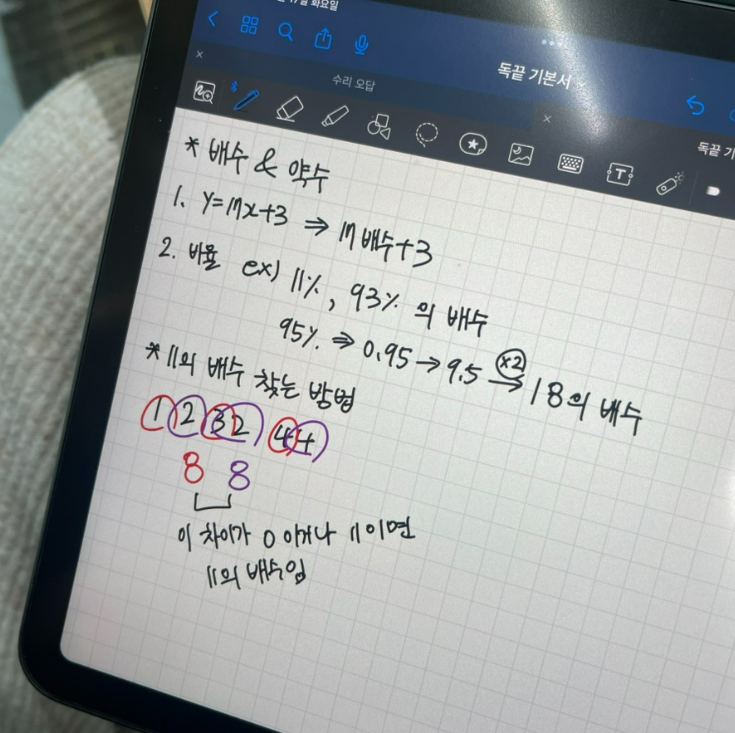 화요일
독끝 기본서
수리 오답
독끝 기
T
* 배수 & 약수
1. y=mx+3 ⇒ m배수+3
2. 비율 ex) 11%, 93% 의 배수
95% ⇒ 0.95 → 9.5 ×2→ 18의 배수
* 11의 배수 찾는 방법
1 2 3 2 4 4
8 8
이 차이가 0 이거나 11이면
11의 배수임